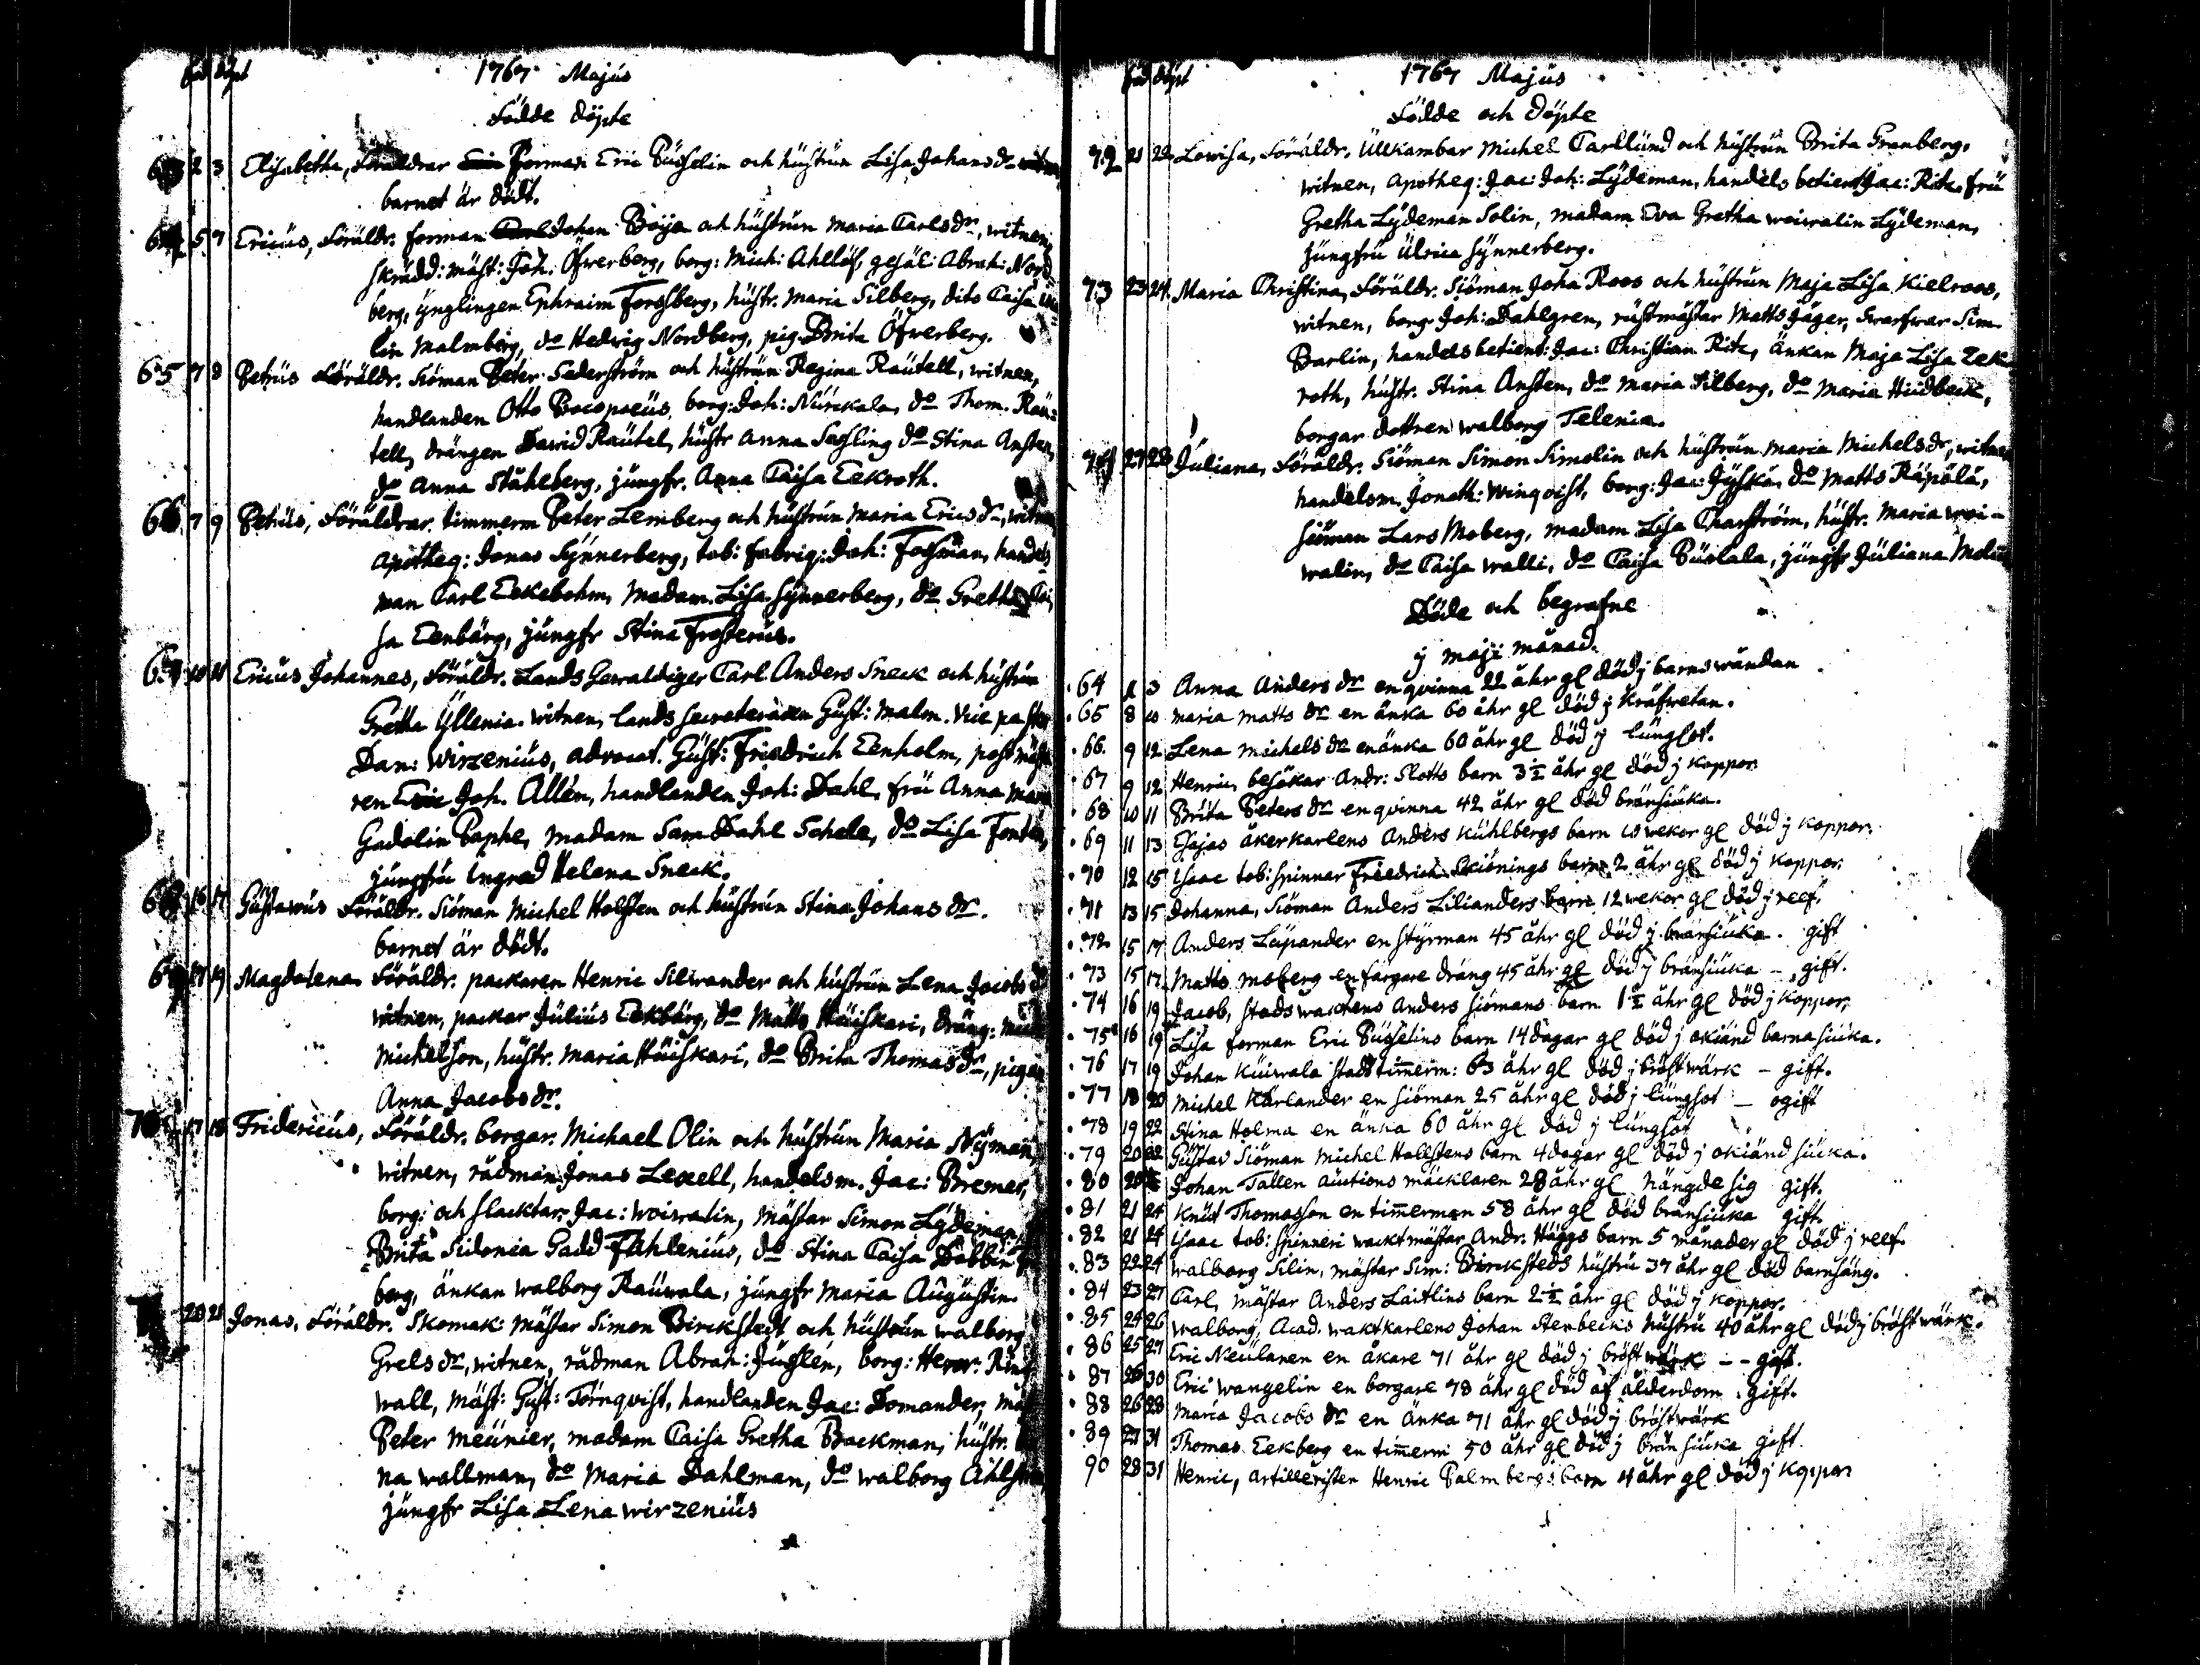 föd döpt 1767 Majus
Födde döpte
63 2 3 Elisabetha, Föräldrar forman Eric Büsselin och hustrun Lisa Johans dr
barnet är dödt.
64 5 7 Ericus, Föräldr. forman Johan Böije och hustrun Maria Carls dr, witnen,
skrädd: mäst: Joh: Öfwerberg, borg: Mich: Ahllöf, gesäl: Abrah: Nord-
berg, ynglingen Ephraim Forssberg, hustr. Maria Silberg, dito Caisa
lin Malmberg, do Hedwig Nordberg, pig. Brita Öfwerberg.
65 7 8 Petrus Föräldr. Siöman Peter Sederström och hustrun Regina Rautell, witnen,
handlanden Otto Bocopoeus, borg: Joh: Nürckala, do Thom. Rau=
tell, drängen Dawid Rautel, hustr Anna Sasling do Stina Ansten,
do Anna Ståhlberg, jungfr. Anna Caisa Eekroth.
66 7 9 Petrus, Föräldrar. timmerm Peter Lemberg och hustrun Maria Erics dr, witnen
apotheq: Jonas Synnerberg, tob: fabriq: Joh: Fossman, handels
man Carl Eekebohm, Madam. Lisa Synnerberg, do Gretha Cai
sa Eenbärg, jungfr Stina Frosterus.
67 10 11 Ericus Johannes, Föräldr. Lands Gewaldiger Carl Anders Sneck och hustrun
Gretha Yllenia. witnen, lands secreteraren Gust: Malm. vice pastor
Dan: Wirzenius, advocat. Gust: Friedrich Eenholm, postmäst
ren Joh. Allén, handlanden Joh: Dahl, fru Anna Maria
Gadolin Paphe, madam Sara Dahl Schele, do Lisa Fonten,
jungfru Ingred Helena Sneck.
68 16 17 Gustawus Föräldr. Siöman Michel Holsten och hustrun Stina Johans dr.
barnet är dödt.
69 17 19 Magdalena Föräldr. packaren Henric Silwander och hustrun Lena Jacobs d
witnen, packar Julius Eekbärg, do Matts Häiskari, dräng:
Michelson, hustr. Maria Häiskari, do Brita Thomas dr, pigan
Anna Jacobs dr.
70 17 18 Fridericus, Föräldr. borgar. Michael Olin och hustrun Maria Nyman,
witnen, rådman Jonas Lexell, handelsm. Jac: Bremer,
borg: och slacktar: Jac: Woiwalin, Mästar Simon Lydeman,
Brita Sidonia Gadd Fahlenius, do Stina Caisa Dobbin
berg, änkan Walborg Rauwala, jungfr Maria Augustin.
20 21 Jonas, Föräldr. Skomak: Mästar Simon Birckstedt och hustrun Walborg
Grels dr, witnen, rådman Abrah: Juslén, borg: Henr: Ring
wall, mäst: Gust: Törnqvist, handlanden Jac: Domander,
Peter Meunier, madam Caisa Gretha Backman, hustr.
na Wallman, do Maria Dahlman, do Walborg Ahlström
jungfr Lisa Lena Wirzenius
föd döpt 1767 Majus
Födde och döpte
72 21 22 Lowisa, Föräldr. Ullkambar Michel Carllund och hustrun Brita Granberg.
witnen, Apotheq: Jac: Joh: Lydeman, handels betient Jac: Ritz. fru
Gretha Lydeman Solin, madam Eva Gretha Weiwalin Lydeman,
Jungfru Ulrica Synnerberg.
73 23 24 Maria Christina, Föräldr. Siöman Joha Roos och hustrun Maja Lisa Kielroos,
witnen, borg. Joh: Dahlgren, rustmästar Matts Jäger, Swarfwar Sim.
Barlin, handels betient: Jac: Christian Ritz, änkan Maja Lisa Eek
roth, hustr. Stina Ansten, do Maria Silberg, do Maria Hudbeck,
borgar dottren Walborg Telenia.
74 27 28 Juliana, Föräldr. Siöman Simon Simolin och hustrun Maria Michels dr, witnen
handelsm. Jonath: Winqvist, borg: Jac: Jyskä, do Matts Räpälä,
Siöman Lars Moberg, madam Lisa Charström, hustr. Maria Woi-
walin, do Caisa Walli, do Caisa Purlala, jungfr Juliana
Döde och begrafne
j Maji månad.
64 2 3 Anna Anders dr en qvinna 22 åhr gl död j barnswåndan
65 8 10 Maria Matts dr en änka 60 åhr gl död j kräfwetan.
66 9 12 Lena Michels dr en änka 60 åhr gl död j lungsot.
67 9 12 Henric, besökar Andr: Slotts barn 3 1/2 åhr gl död j koppor
68 10 11 Brita Peters dr en qvinna 42 åhr gl död bränsiuka.
69 11 13 Esajas åkerkarlens Anders Kuhlbergs barn 10 wekor gl död j koppor.
70 12 15 Isaac tob: spinnar Friedrich Skiönings barn 2 åhr gl död j koppor.
71 13 15 Johanna, Siöman Anders Lilianders barn 12 wekor gl död j reef.
72 15 17 Anders Lupander en styrman 45 åhr gl död j bränsiuka. gift
73 15 17 Matts Moberg en färgare dräng 45 åhr gl död j bränsiuka – gift.
74 16 19 Jacob, stads wacktens Anders Siömans barn 1 1/2 åhr gl död j koppor.
75 16 19 Lisa forman Eric Büsselins barn 14 dagar gl död j okiänd barnasiuka.
76 17 19 Johan Kuiwala stads timerm: 63 åhr gl död j bröstwärk – gift.
77 18 20 Michel Karlander en siöman 25 åhr gl död j lungsot – ogift
78 19 22 Stina Holma en änka 60 åhr gl död j lungsot
79 20 22 Gustav Siöman Michel Hallstens barn 4 dagar gl död j okiänd siuka.
80 20 Johan Tallen auctions mäcklaren 28 åhr gl hängde sig gift.
81 21 24 Knut Thomasson en timerman 58 åhr gl död bränsiuka gift.
82 21 24 Isaac tob: spinneri wacktmästar Andr. Häggs barn 5 månader gl död j reef.
83 22 24 Walborg Silin, mästar Sim: Bircksteds hustru 37 åhr gl död barnsäng.
84 23 27 Carl, Mästar Anders Laitlins barn 2 1/2 åhr gl död j koppor.
85 24 26 Walborg, Acad. waktkarlens Johan Stenbecks hustru 40 åhr gl död j bröstwärk.
86 25 27 Eric Neulanen en åkare 71 åhr gl död j bröstwärk – – gift.
87 26 30 Eric Wangelin en borgare 78 åhr gl död af ålderdom. gift.
88 26 28 Maria Jacobs dr en änka 71 åhr gl död j bröstwärk
89 27 31 Thomas Eekberg en timerm 50 åhr gl död j bränsiuka gift.
90 28 31 Henric, artilleristen Henric Palmbergs barn 4 åhr gl död j koppor